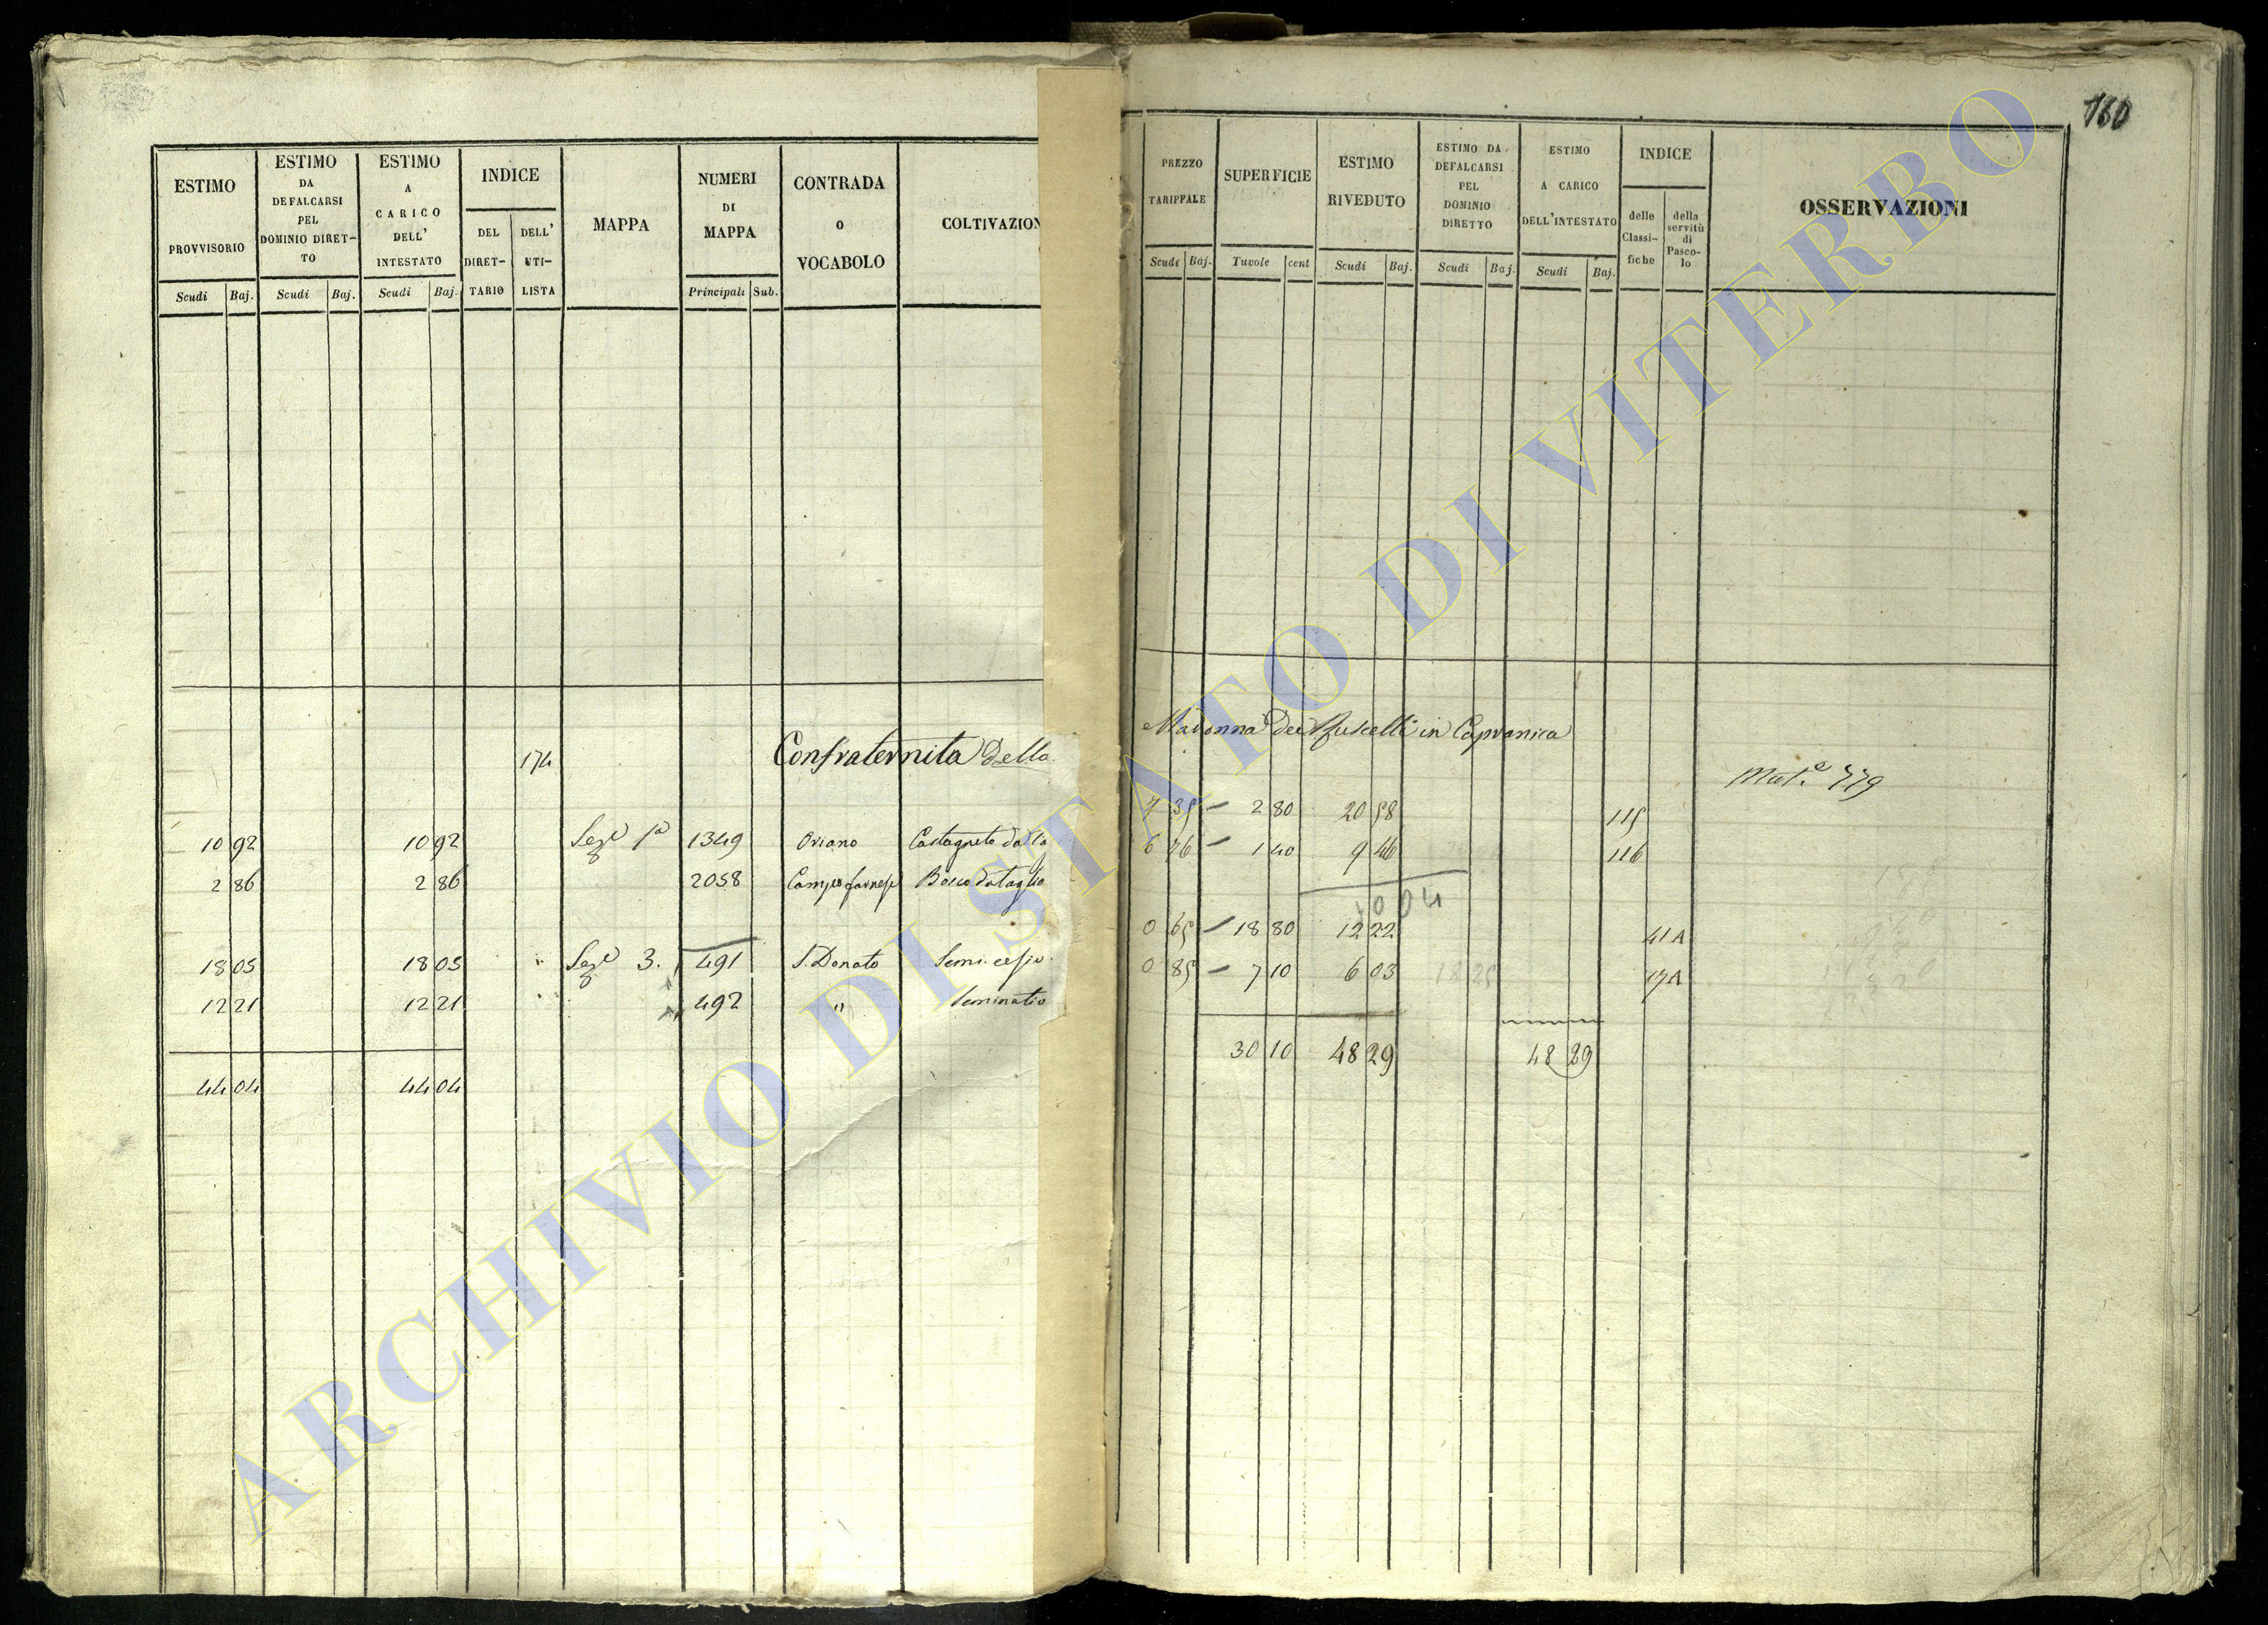 160
ESTIMO PROVVISORIO
ESTIMO DA DEFALCARSI PEL DOMINIO DIRET-TO
ESTIMO A CARICO DELL' INTESTATO
INDICE
DEL DIRET-TARIO
DELL' UTI-LISTA
MAPPA
NUMERI DI MAPPA
CONTRADA O VOCABOLO
COLTIVAZION
Scudi Baj. Scudi Baj. Scudi Baj. Principali Sub.
174 Confraternita della
10 92 10 92 Sez.e 1a 1349 Oriano Castagneto da
2 86 2 86 2058 Campo Bosco da taglio
18 05 18 05 Sez.e 3. 491 S. Donato
12 21 12 21 492 " Seminativo
44 04 44 04
PREZZO TARIFFALE
SUPERFICIE
ESTIMO RIVEDUTO
ESTIMO DA DEFALCARSI PEL DOMINIO DIRETTO
ESTIMO A CARICO DELL'INTESTATO
INDICE
delle Classi-fiche
della servitù di Pasco-lo
OSSERVAZIONI
Scudi Baj. Tavole cent Scudi Baj. Scudi Baj. Scudi Baj.
Madonna dei in Capranica
Mat.e 779
7 35 – 2 80 20 58 115
6 76 – 1 40 9 46 116
30 04
0 65 – 18 80 12 22 41 A
0 85 – 7 10 6 03 18 25 17 A
30 10 48 29 48 29
ARCHIVIO DI STATO DI VITERBO